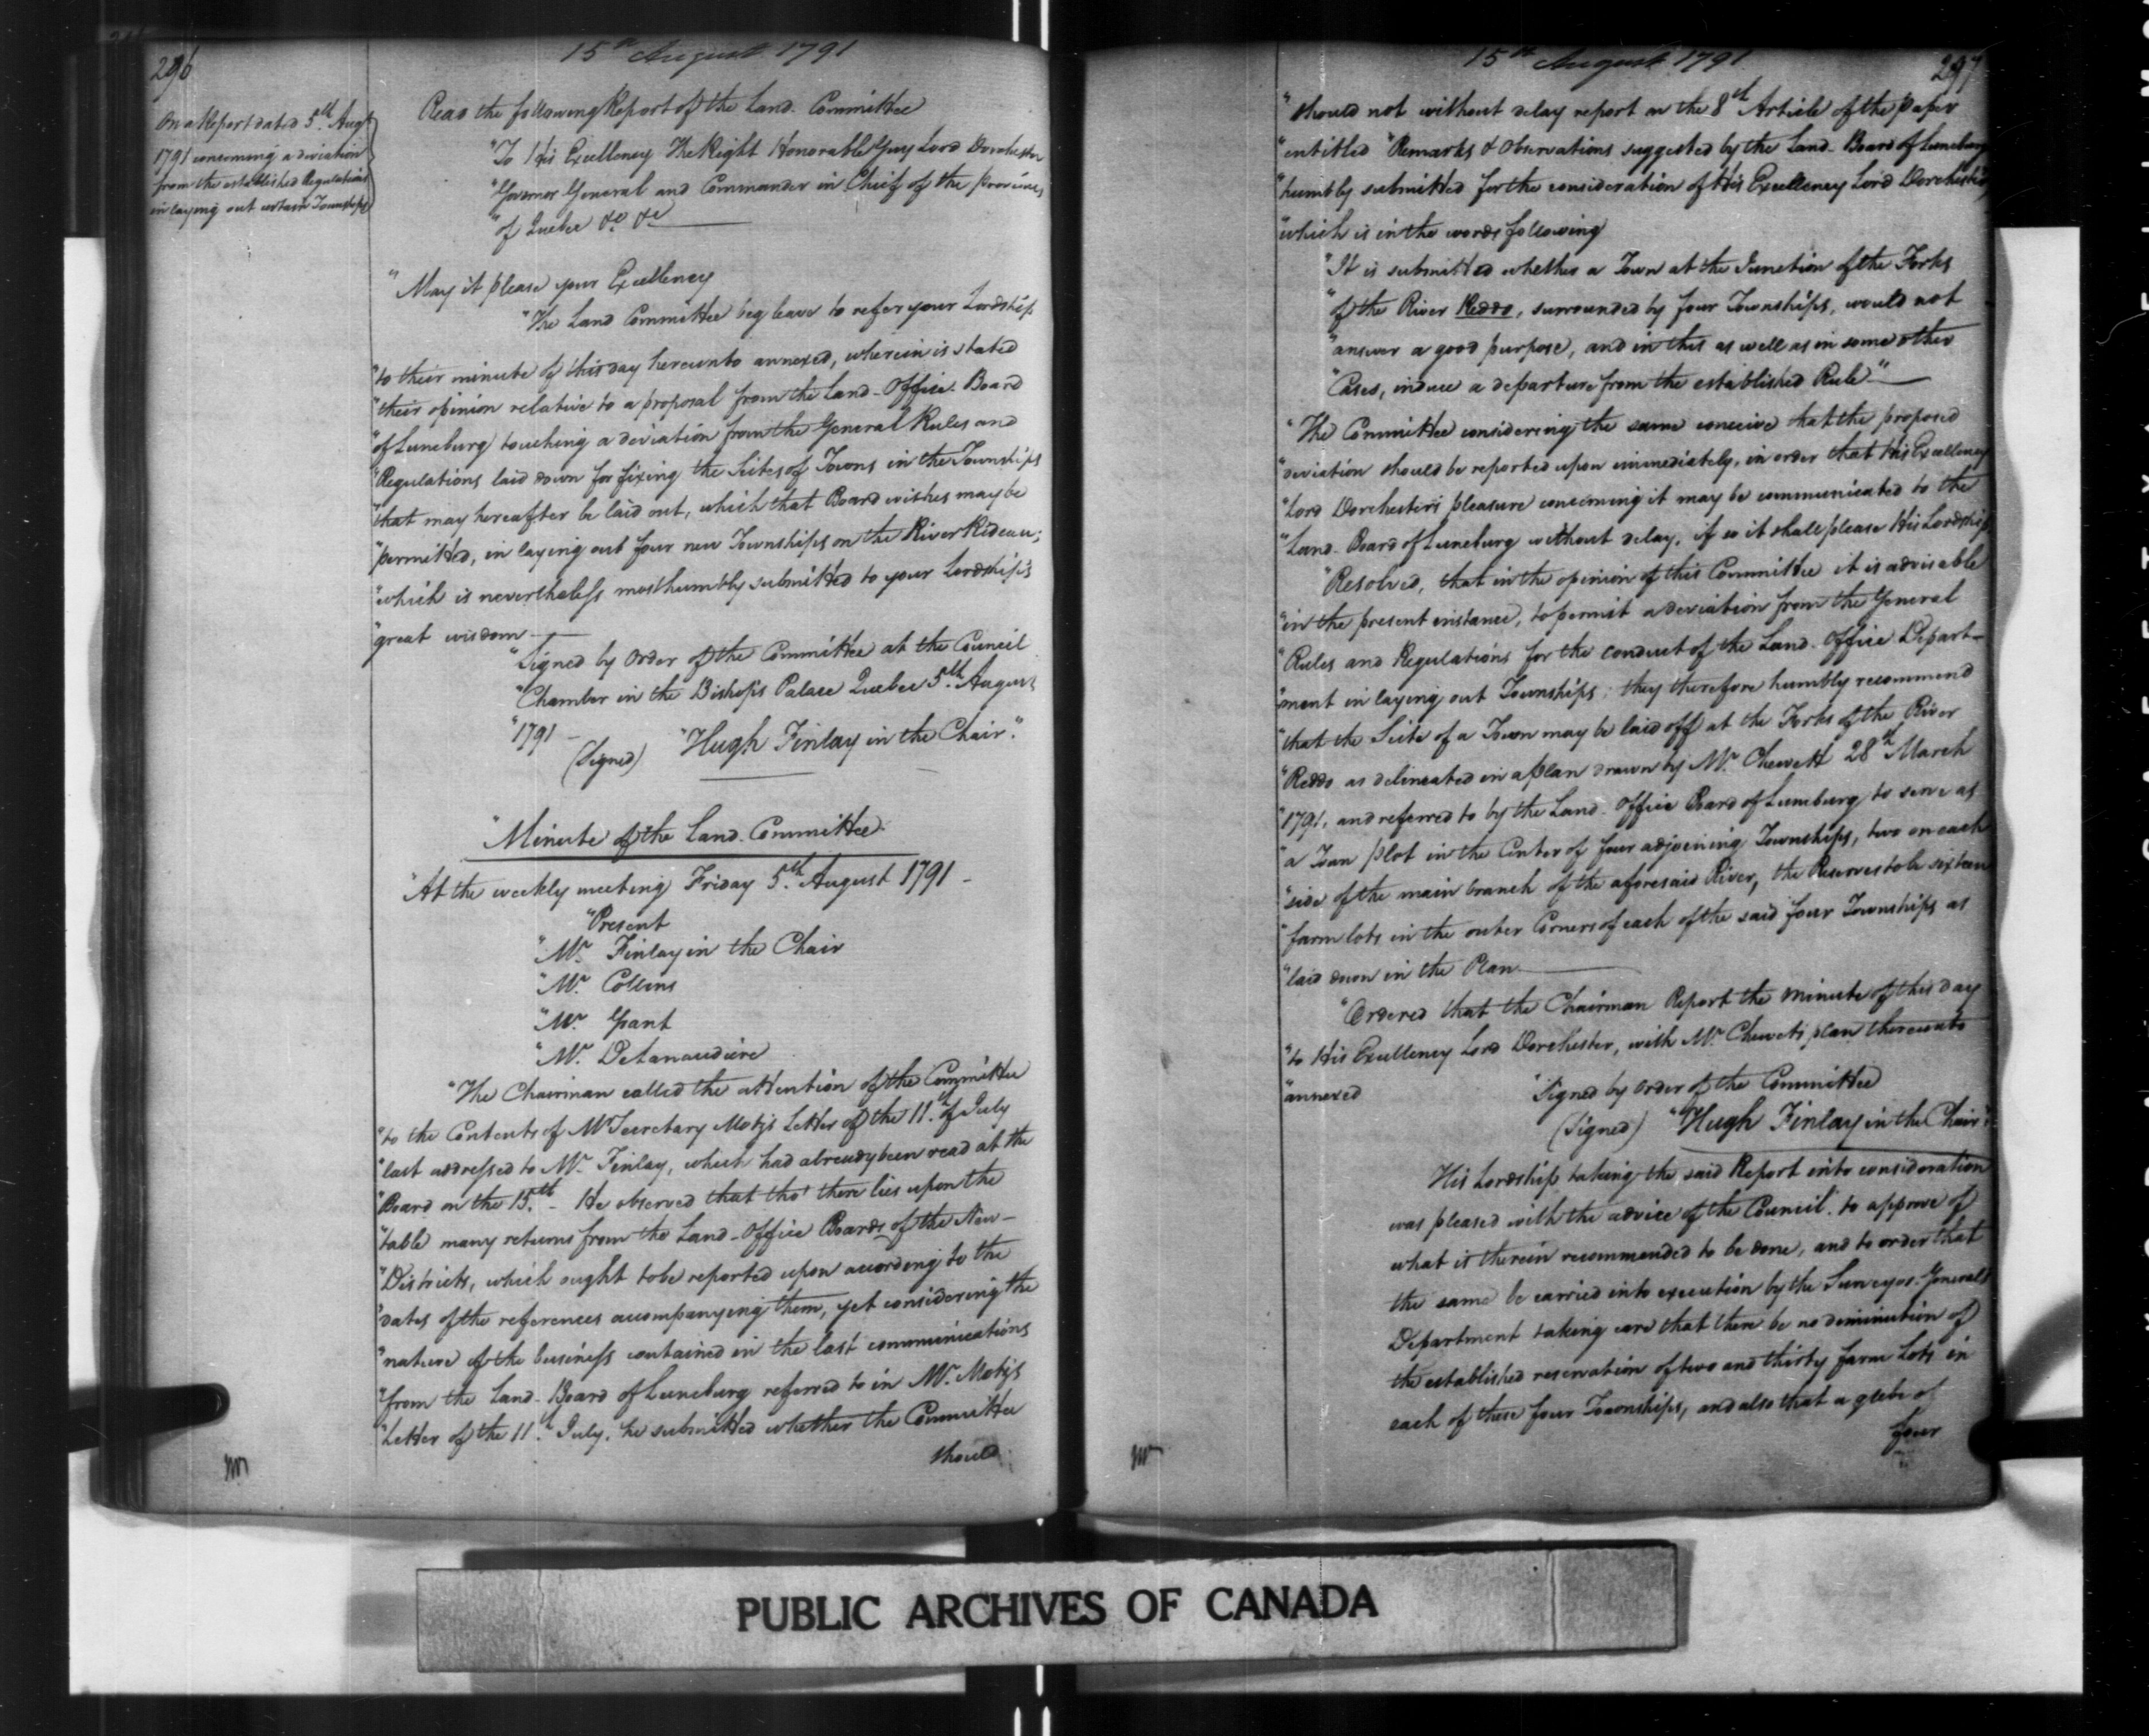 296
15th August 1791
On a Report dated 5th Augt
1791 concerning a deviation
from the established Regulations
in laying out certain Townships
Read the following Report of the Land Committee
"To His Excellency The Right Honorable Guy Lord Dorchester
"Governor General and Commander in Chief of the Province
"of Quebec &c &c
"May it please your Excellency
"The Land Committee beg leave to refer your Lordship
"to their minute of this day hereunto annexed, wherein is stated
"their opinion relative to a proposal from the Land-Office Board
"of Luneburg touching a deviation from the General Rules and
"Regulations laid down for fixing the Scites of Towns in the Townships
"that may hereafter be laid out, which that Board wishes may be
"permitted, in laying out four new Townships on the River Rideau;
"which is nevertheless most humbly submitted to your Lordship's
"great wisdom
"Signed by Order of the Committee at the Council
"Chamber in the Bishop's Palace Quebec 5th August
"1791 –
(Signed) "Hugh Finlay in the Chair".
"Minute of the Land Committee
"At the weekly meeting Friday 5th August 1791 –
"Present
"Mr Finlay in the Chair
"Mr Collins
"Mr Grant
"Mr DeLanaudiere
"The Chairman called the attention of the Committee
"to the Contents of Mr Secretary Motz's Letter of the 11th of July
"last addressed to Mr Finlay, which had already been read at the
"Board on the 15th – He observed that tho' there lies upon the
"table many returns from the Land-Office Boards of the New-
"Districts, which ought to be reported upon according to the
"dates of the references accompanying them, yet considering the
"nature of the business contained in the last communications
"from the Land-Board of Luneburg referred to in Mr Motz's
"Letter of the 11th July, he submitted whether the Committee
should
15th August 1791
297
"should not without delay report on the 8th Article of the paper
"entitled "Remarks & Observations suggested by the Land-Board of Luneburg
"humbly submitted for the consideration of His Excellency Lord Dorchester,
"which is in the words following
"It is submitted whether a Town at the Junction of the Forks
"of the River Reddo, surrounded by four Townships, would not
"answer a good purpose, and in this as well as in some other
"Cases, induce a departure from the established Rule"
"The Committee considering the same conceive that the proposed
"deviation should be reported upon immediately, in order that His Excellency
"Lord Dorchester's pleasure concerning it may be communicated to the
"Land-Board of Luneburg without delay, if so it shall please His Lordship
"Resolved, that in the opinion of this Committee it is advisable
"in the present instance, to permit a deviation from the General
"Rules and Regulations for the conduct of the Land-Office Depart-
"ment in laying out Townships; they therefore humbly recommend
"that the Scite of a Town may be laid off at the Forks of the River
"Reddo as delineated in a plan drawn by Mr Chewett 28th March
"1791, and referred to by the Land-Office Board of Luneburg to serve as
"a Town plot in the Center of four adjoining Townships, two on each
"side of the main branch of the aforesaid River, the Reserves to be sixteen
"farm lots in the outer Corners of each of the said four Townships as
"laid down in the Plan
"Ordered that the Chairman Report the minute of this day
"to His Excellency Lord Dorchester, with Mr Chewett's plan thereunto
"annexed
"Signed by order of the Committee
(Signed) "Hugh Finlay in the Chair"
His Lordship taking the said Report into consideration
was pleased with the advice of the Council to approve of
what is therein recommended to be done, and to order that
the same be carried into execution by the Surveyor General's
Department taking care that there be no diminution of
the established reservation of two and thirty farm Lots in
each of these four Townships, and also that a glebe of
four
PUBLIC ARCHIVES OF CANADA